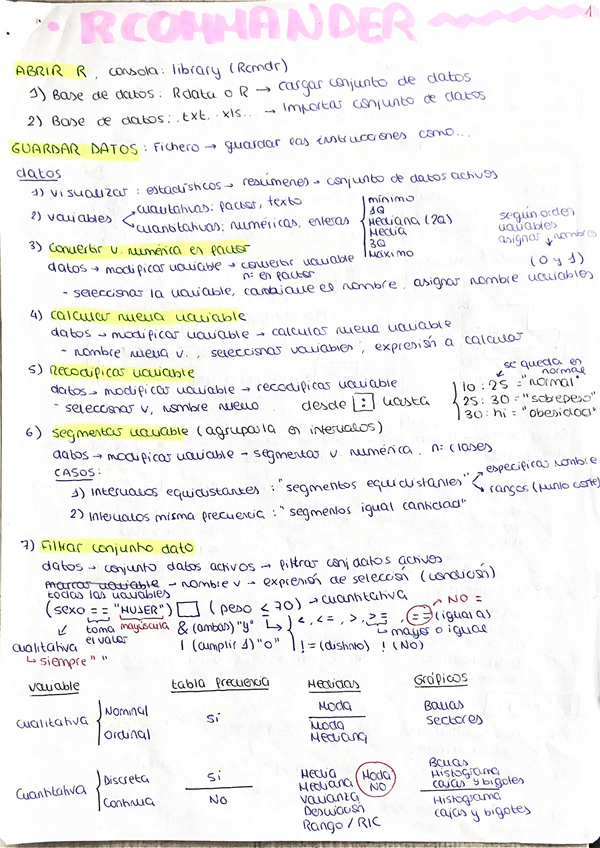 1
• RCOMMANDER
ABRIR R, consola: library (Rcmdr)
1) Base de datos: Rdata o R → cargar conjunto de datos
2) Base de datos: .txt. .xls... → Importar conjunto de datos
GUARDAR DATOS: Fichero → guardar las instrucciones como...
datos
1) visualizar: estadísticos → resúmenes → conjunto de datos activos
2) variables cualitativas: factor, texto
cuantitativas: numéricas, enteras
mínimo
1Q
Mediana (2Q)
Media
3Q
Máximo
según orden
variables
asignar nombres
(0 y 1)
3) Convertir v. numérica en factor
datos → modificar variable → convertir variable
nº en factor
- seleccionar la variable, cambiarle el nombre, asignar nombre variables
4) calcular nueva variable
datos → modificar variable → calcular nueva variable
- nombre nueva v., seleccionar variables, expresión a calcular
5) Recodificar variable
datos → modificar variable → recodificar variable
- seleccionar v, nombre nuevo desde : hasta
se queda en
normal
10:25 = "normal"
25:30 = "sobrepeso"
30:hi = "obesidad"
6) Segmentar variable (agruparla en intervalos)
datos → modificar variable → segmentar v. numérica, nº clases
CASOS:
1) Intervalos equidistantes: "segmentos equidistantes" especificar nombre
rangos (punto corte)
2) Intervalos misma frecuencia: "segmentos igual cantidad"
7) Filtrar conjunto dato
datos → conjunto datos activos → filtrar conj datos activos
marcar variable → nombre v → expresión de selección (condición)
todas las variables
(sexo == "MUJER") (peso ≤ 70) → cuantitativa
NO =
cualitativa toma mayúscula & (ambas) "y" <, <=, >, >=, == (igual a)
↳ siempre " " el valor | (cumplir 1) "o" != (distinto) ! (NO) mayor o igual
variable tabla frecuencia Medidas Gráficos
Cualitativa Nominal Sí Moda Barras
Ordinal Moda Sectores
Mediana
Cuantitativa Discreta Sí Media Barras
Continua No Mediana Histograma
Moda
NO
Varianza cajas y bigotes
Desviación Histograma
Rango / RIC cajas y bigotes